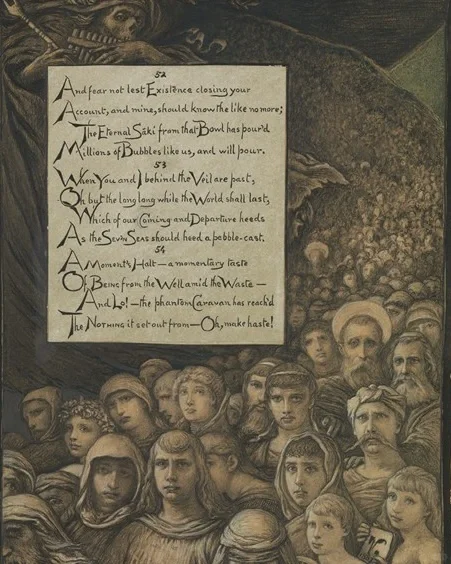 52
And fear not lest Existence closing your
Account, and mine, should know the like no more;
The Eternal Sáki from that Bowl has pour'd
Millions of Bubbles like us, and will pour.
53
When You and I behind the Veil are past,
Oh but the long long while the World shall last,
Which of our Coming and Departure heeds
As the Seven Seas should heed a pebble-cast.
54
A Moment's Halt—a momentary taste
Of Being from the Well amid the Waste—
And Lo!—the phantom Caravan has reach'd
The Nothing it set out from—Oh, make haste!